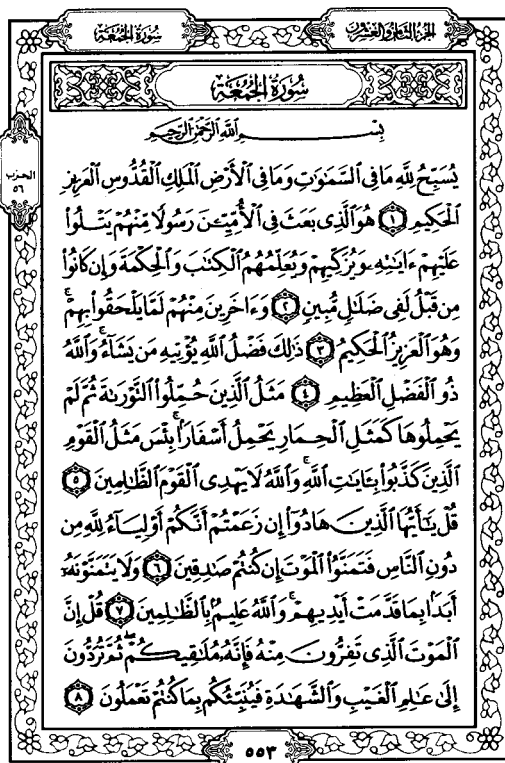 سُورَةُ الجُمُعَةِ
الجُزْءُ الثَّامِنُ وَالعِشْرُونَ
الحزب
٥٦
سُورَةُ الجُمُعَةِ
بِسْمِ اللَّهِ الرَّحْمَٰنِ الرَّحِيمِ
يُسَبِّحُ لِلَّهِ مَا فِي السَّمَٰوَٰتِ وَمَا فِي الْأَرْضِ الْمَلِكِ الْقُدُّوسِ الْعَزِيزِ
الْحَكِيمِ ١ هُوَ الَّذِي بَعَثَ فِي الْأُمِّيِّـۧنَ رَسُولًا مِّنْهُمْ يَتْلُوا۟
عَلَيْهِمْ ءَايَٰتِهِۦ وَيُزَكِّيهِمْ وَيُعَلِّمُهُمُ الْكِتَٰبَ وَالْحِكْمَةَ وَإِن كَانُوا۟
مِن قَبْلُ لَفِي ضَلَٰلٍ مُّبِينٍ ٢ وَءَاخَرِينَ مِنْهُمْ لَمَّا يَلْحَقُوا۟ بِهِمْ ۚ
وَهُوَ الْعَزِيزُ الْحَكِيمُ ٣ ذَٰلِكَ فَضْلُ اللَّهِ يُؤْتِيهِ مَن يَشَآءُ ۚ وَاللَّهُ
ذُو الْفَضْلِ الْعَظِيمِ ٤ مَثَلُ الَّذِينَ حُمِّلُوا۟ التَّوْرَىٰةَ ثُمَّ لَمْ
يَحْمِلُوهَا كَمَثَلِ الْحِمَارِ يَحْمِلُ أَسْفَارًۢا ۚ بِئْسَ مَثَلُ الْقَوْمِ
الَّذِينَ كَذَّبُوا۟ بِـَٔايَٰتِ اللَّهِ ۚ وَاللَّهُ لَا يَهْدِي الْقَوْمَ الظَّٰلِمِينَ ٥
قُلْ يَٰٓأَيُّهَا الَّذِينَ هَادُوٓا۟ إِن زَعَمْتُمْ أَنَّكُمْ أَوْلِيَآءُ لِلَّهِ مِن
دُونِ النَّاسِ فَتَمَنَّوُا۟ الْمَوْتَ إِن كُنتُمْ صَٰدِقِينَ ٦ وَلَا يَتَمَنَّوْنَهُۥٓ
أَبَدًۢا بِمَا قَدَّمَتْ أَيْدِيهِمْ ۚ وَاللَّهُ عَلِيمٌۢ بِالظَّٰلِمِينَ ٧ قُلْ إِنَّ
الْمَوْتَ الَّذِي تَفِرُّونَ مِنْهُ فَإِنَّهُۥ مُلَٰقِيكُمْ ۖ ثُمَّ تُرَدُّونَ
إِلَىٰ عَٰلِمِ الْغَيْبِ وَالشَّهَٰدَةِ فَيُنَبِّئُكُم بِمَا كُنتُمْ تَعْمَلُونَ ٨
٥٥٣